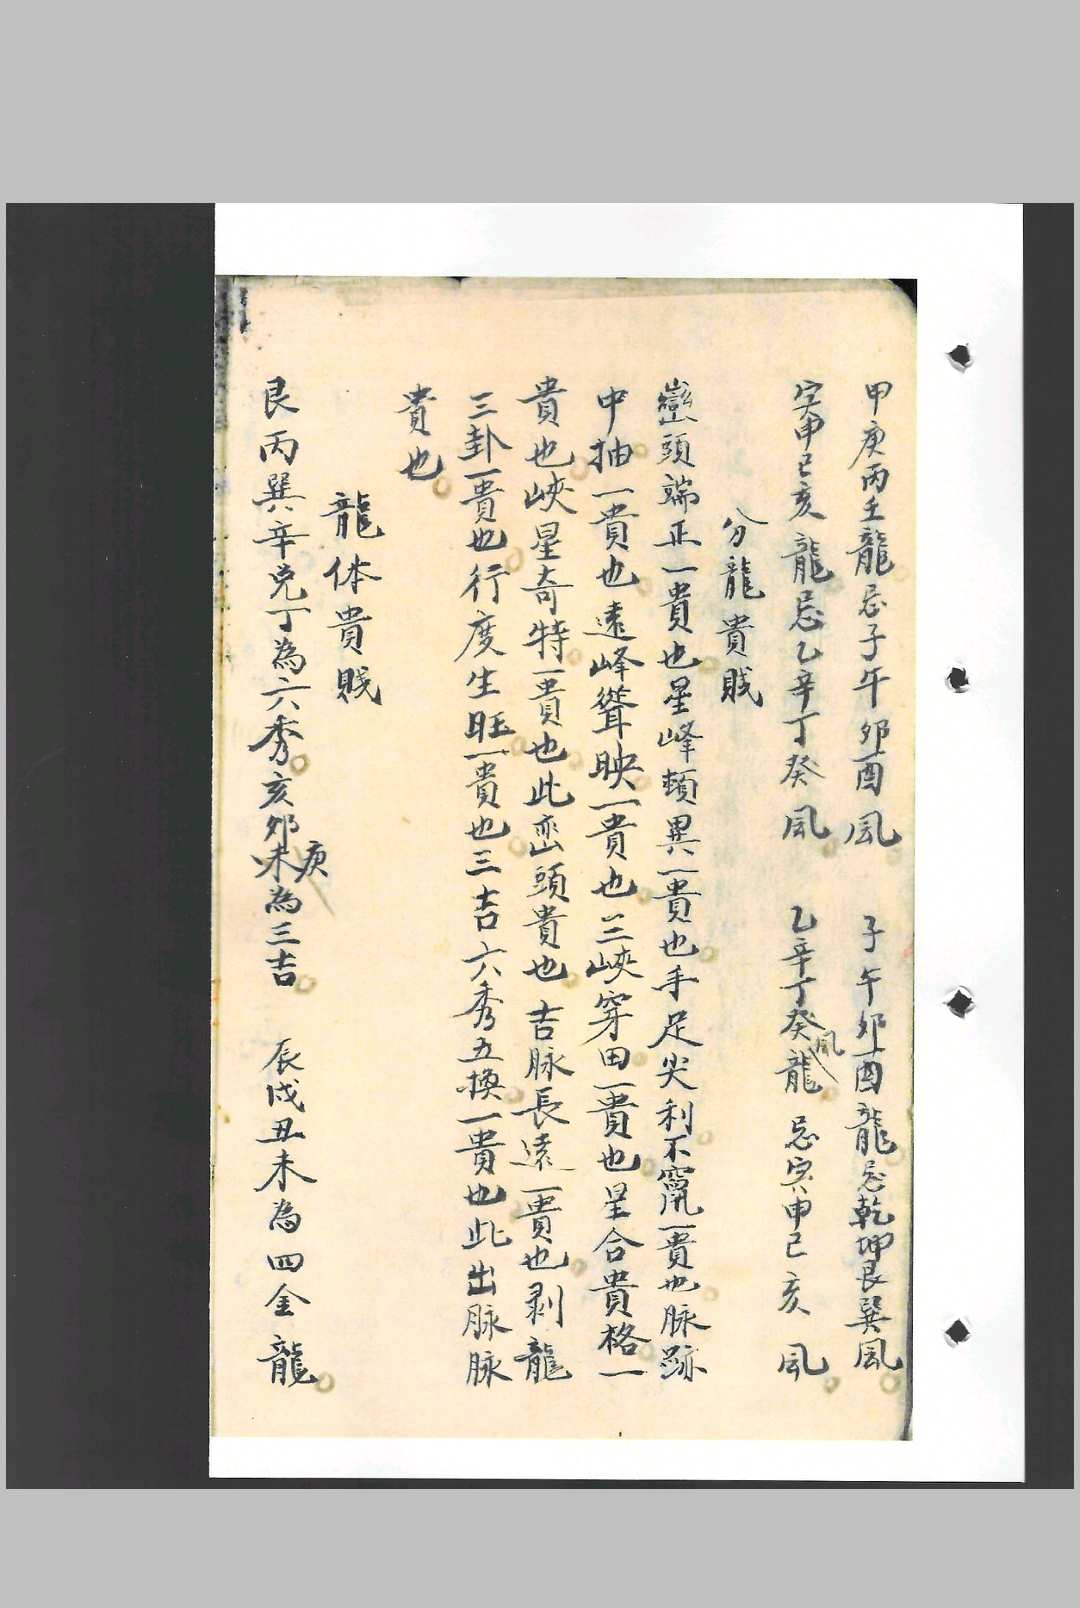 甲庚丙壬龍忌子午卯酉風　子午卯酉龍忌乾坤艮巽風
寅申巳亥龍忌乙辛丁癸風　乙辛丁癸龍風忌寅申巳亥風
分龍貴賤
巒頭端正一貴也星峰頓異一貴也手足尖利不竄一貴也脉跡
中抽一貴也遠峰聳映一貴也三峽穿田一貴也星合貴格一
貴也峽星奇特一貴也此巒頭貴也吉脉長遠一貴也剥龍
三卦一貴也行度生旺一貴也三吉六秀五換一貴也此出脉脉
貴也
龍体貴賤
艮丙巽辛兌丁為六秀亥卯未庚為三吉　辰戌丑未為四金龍